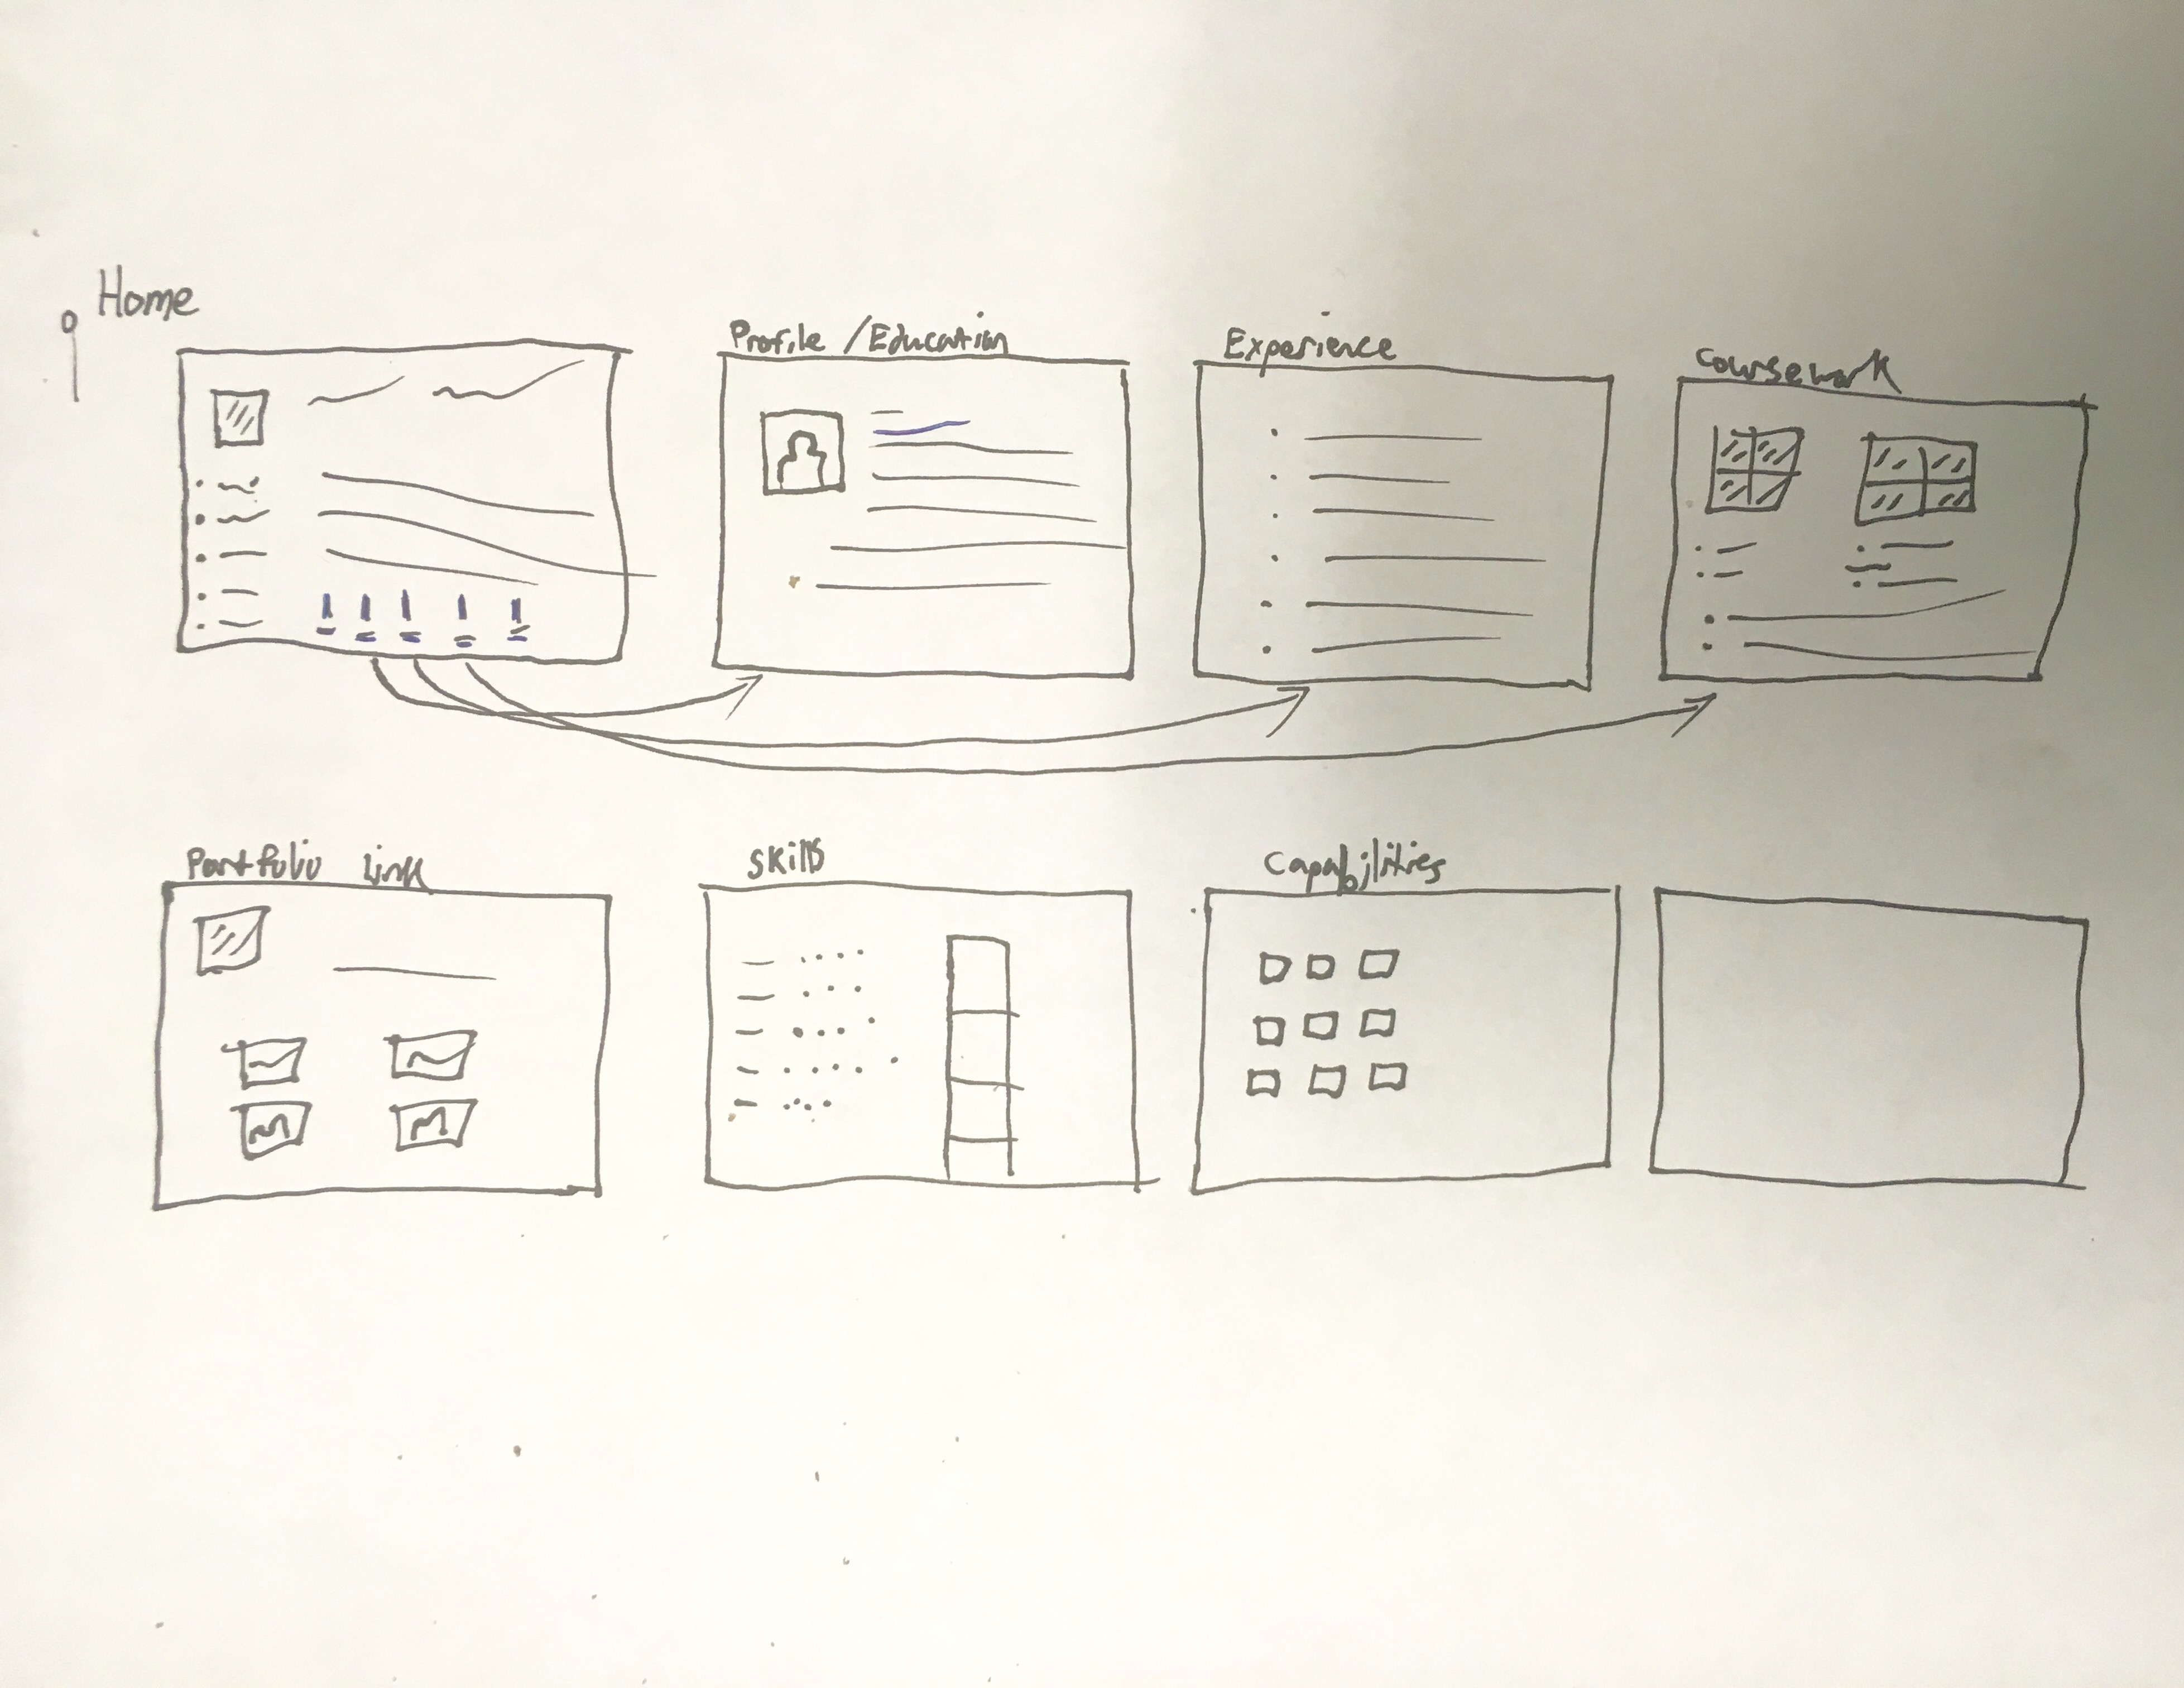 Home
Profile /Education
Experience
Coursework
Portfolio Link
Skills
Capabilities